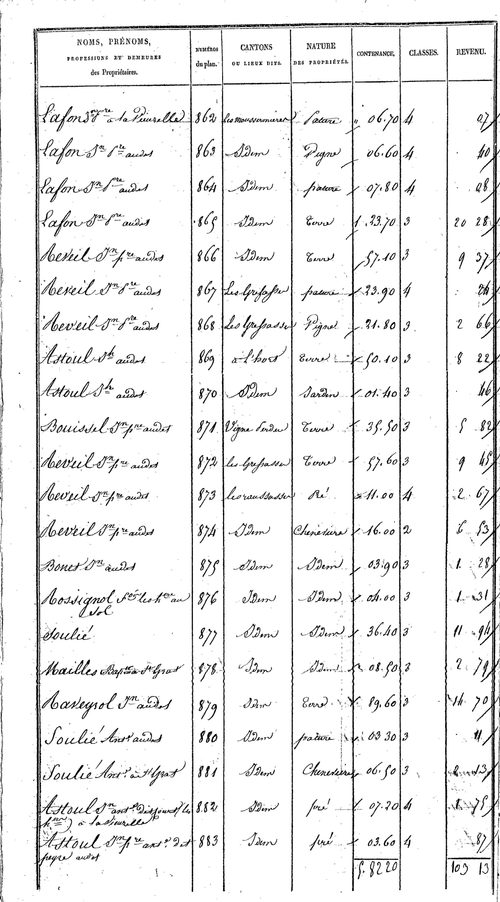 NOMS, PRÉNOMS, PROFESSIONS ET DEMEURES des Propriétaires. NUMÉROS du plan. CANTONS OU LIEUX DITS. NATURE DES PROPRIÉTÉS. CONTENANCE. CLASSES. REVENU.
Lafon Jn pre à la Vieurelle 862 les moussurnieres Pature " 06.70 4 07
Lafon Jn Pre audet 863 Idem Vigne 06.60 4 40
Lafon Jn Pre audet 864 Idem pature 07.80 4 08
Lafon Jn Pre audet 865 Idem Terre 1.23.70 3 20 28
Reveil Jn pre audet 866 Idem Terre 57.10 3 9 37
Reveil Jn Pre audet 867 Les Gresasses pature 23.90 4 24
Reveil Jn Pre audet 868 Les Gresasses Vigne 21.80 3 2 66
Astoul Jh audet 869 à l'hort Terre 50.10 3 8 22
Astoul Jh audet 870 Idem Jardin 01.40 3 46
Bouissel Jn pre audet 871 Vigne Perdue Terre 35.50 3 5 82
Reveil Jn pre audet 872 les Gresasses Terre 57.60 3 9 45
Reveil Jn pre audet 873 Pré 11.00 4 2 67
Reveil Jn pre audet 874 Idem Cheneviere 16.00 2 6 53
Bonet Jn audet 875 Idem Idem 03.90 3 1 28
Rossignol au 876 Idem Idem 04.00 3 1 31
Sol
Soulié 877 Idem Idem 36.40 3 11 94
Mailles à St Grat 878 Idem Idem 08.50 3 2 79
Raveyrol Jn audet 879 Idem Terre 89.60 3 14 70
Soulié Ant. audet 880 Idem pature 03.30 3 11
Soulié Ant. à St Grat 881 Idem Cheneviere 06.50 3 2 13
Astoul Jn 882 Idem pré 07.20 4 1 75
à la Vieurelle
Astoul Jn pre 883 Idem pré 03.60 4 87
audet
5.8220 103 13